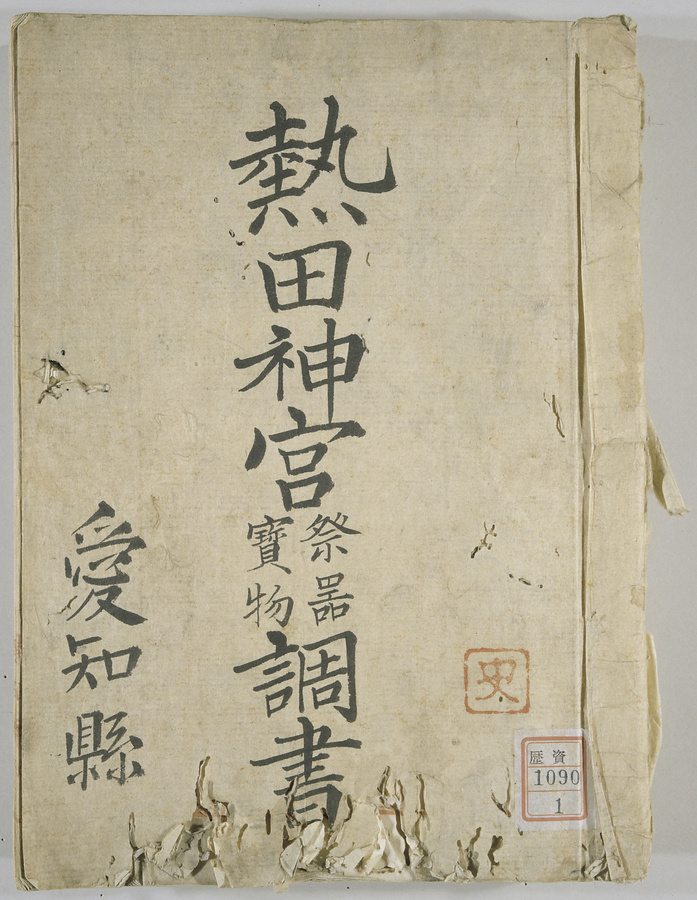 熱田神宮祭器寶物調書
愛知縣
史
歴資
1090
1